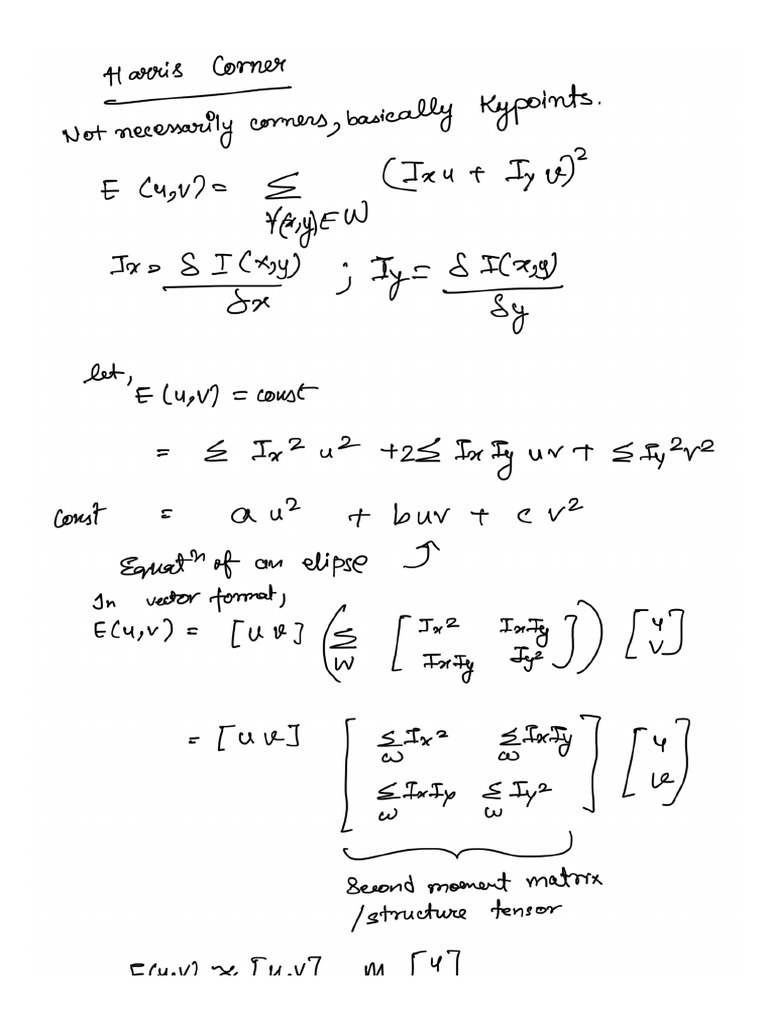 Harris Corner
Not necessarily corners, basically Kypoints.
E (u,v) = Σ (Ix u + Iy v)²
∀(x,y)∈W
Ix = δ I(x,y) / δx ; Iy = δ I(x,y) / δy
let,
E(u,v) = const
= Σ Ix² u² + 2Σ Ix Iy uv + Σ Iy² v²
const = a u² + buv + c v²
Equatⁿ of an elipse
In vector format,
E(u,v) = [u v] (Σ_W [Ix² IxIy ; IxIy Iy²]) [u v]
= [u v] [Σ_W Ix² Σ_W IxIy ; Σ_W IxIy Σ_W Iy²] [u v]
Second moment matrix
/structure tensor
E(u,v) ≈ [u,v] M [u]